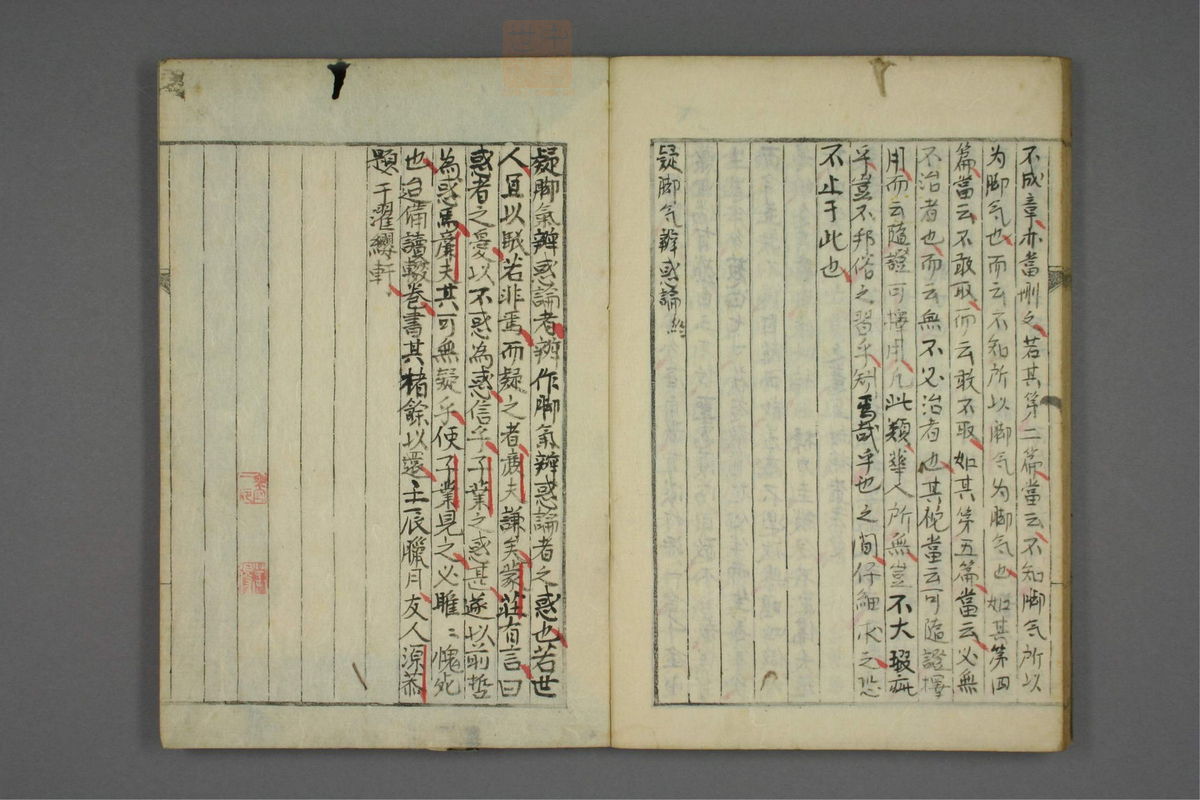 不成章亦當刪之若其第二篇當云不知脚气所以
为脚气也而云不知所以脚气为脚气也如其第四
篇當云不敢取而云敢不取如其第五篇當云必無
不治者也而云無不必治者也其他當云可隨證擇
用而云隨證可擇用凡此類華人所無豈不大瑕疵
乎豈不邦俗之習乎矧焉哉乎也之間仔細求之恐
不止于此也
疑脚气辨惑論終
疑脚氣辨惑論者辨作脚氣辨惑論者之惑也若世
人宜以眂若非焉而疑之者廣夫謙矣蒙莊有言曰
惑者之憂以不惑為惑信乎子業之惑甚遂以前哲
為惑焉廣夫其可無疑乎使子業見之必睢〻愧死
也迨備讀數卷書其楮餘以還壬辰臘月友人源恭
題于濯纓軒